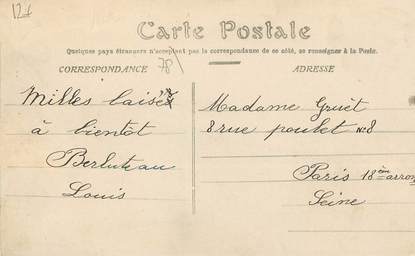 12f
Carte Postale
Quelques pays étrangers n'acceptent pas la correspondance de ce côté, se renseigner à la Poste.
CORRESPONDANCE
78
ADRESSE
Milles baisés
à bientôt
Berluteau
Louis
Madame Gruêt
8 rue poulet N°8
Paris 18ème arron
Seine